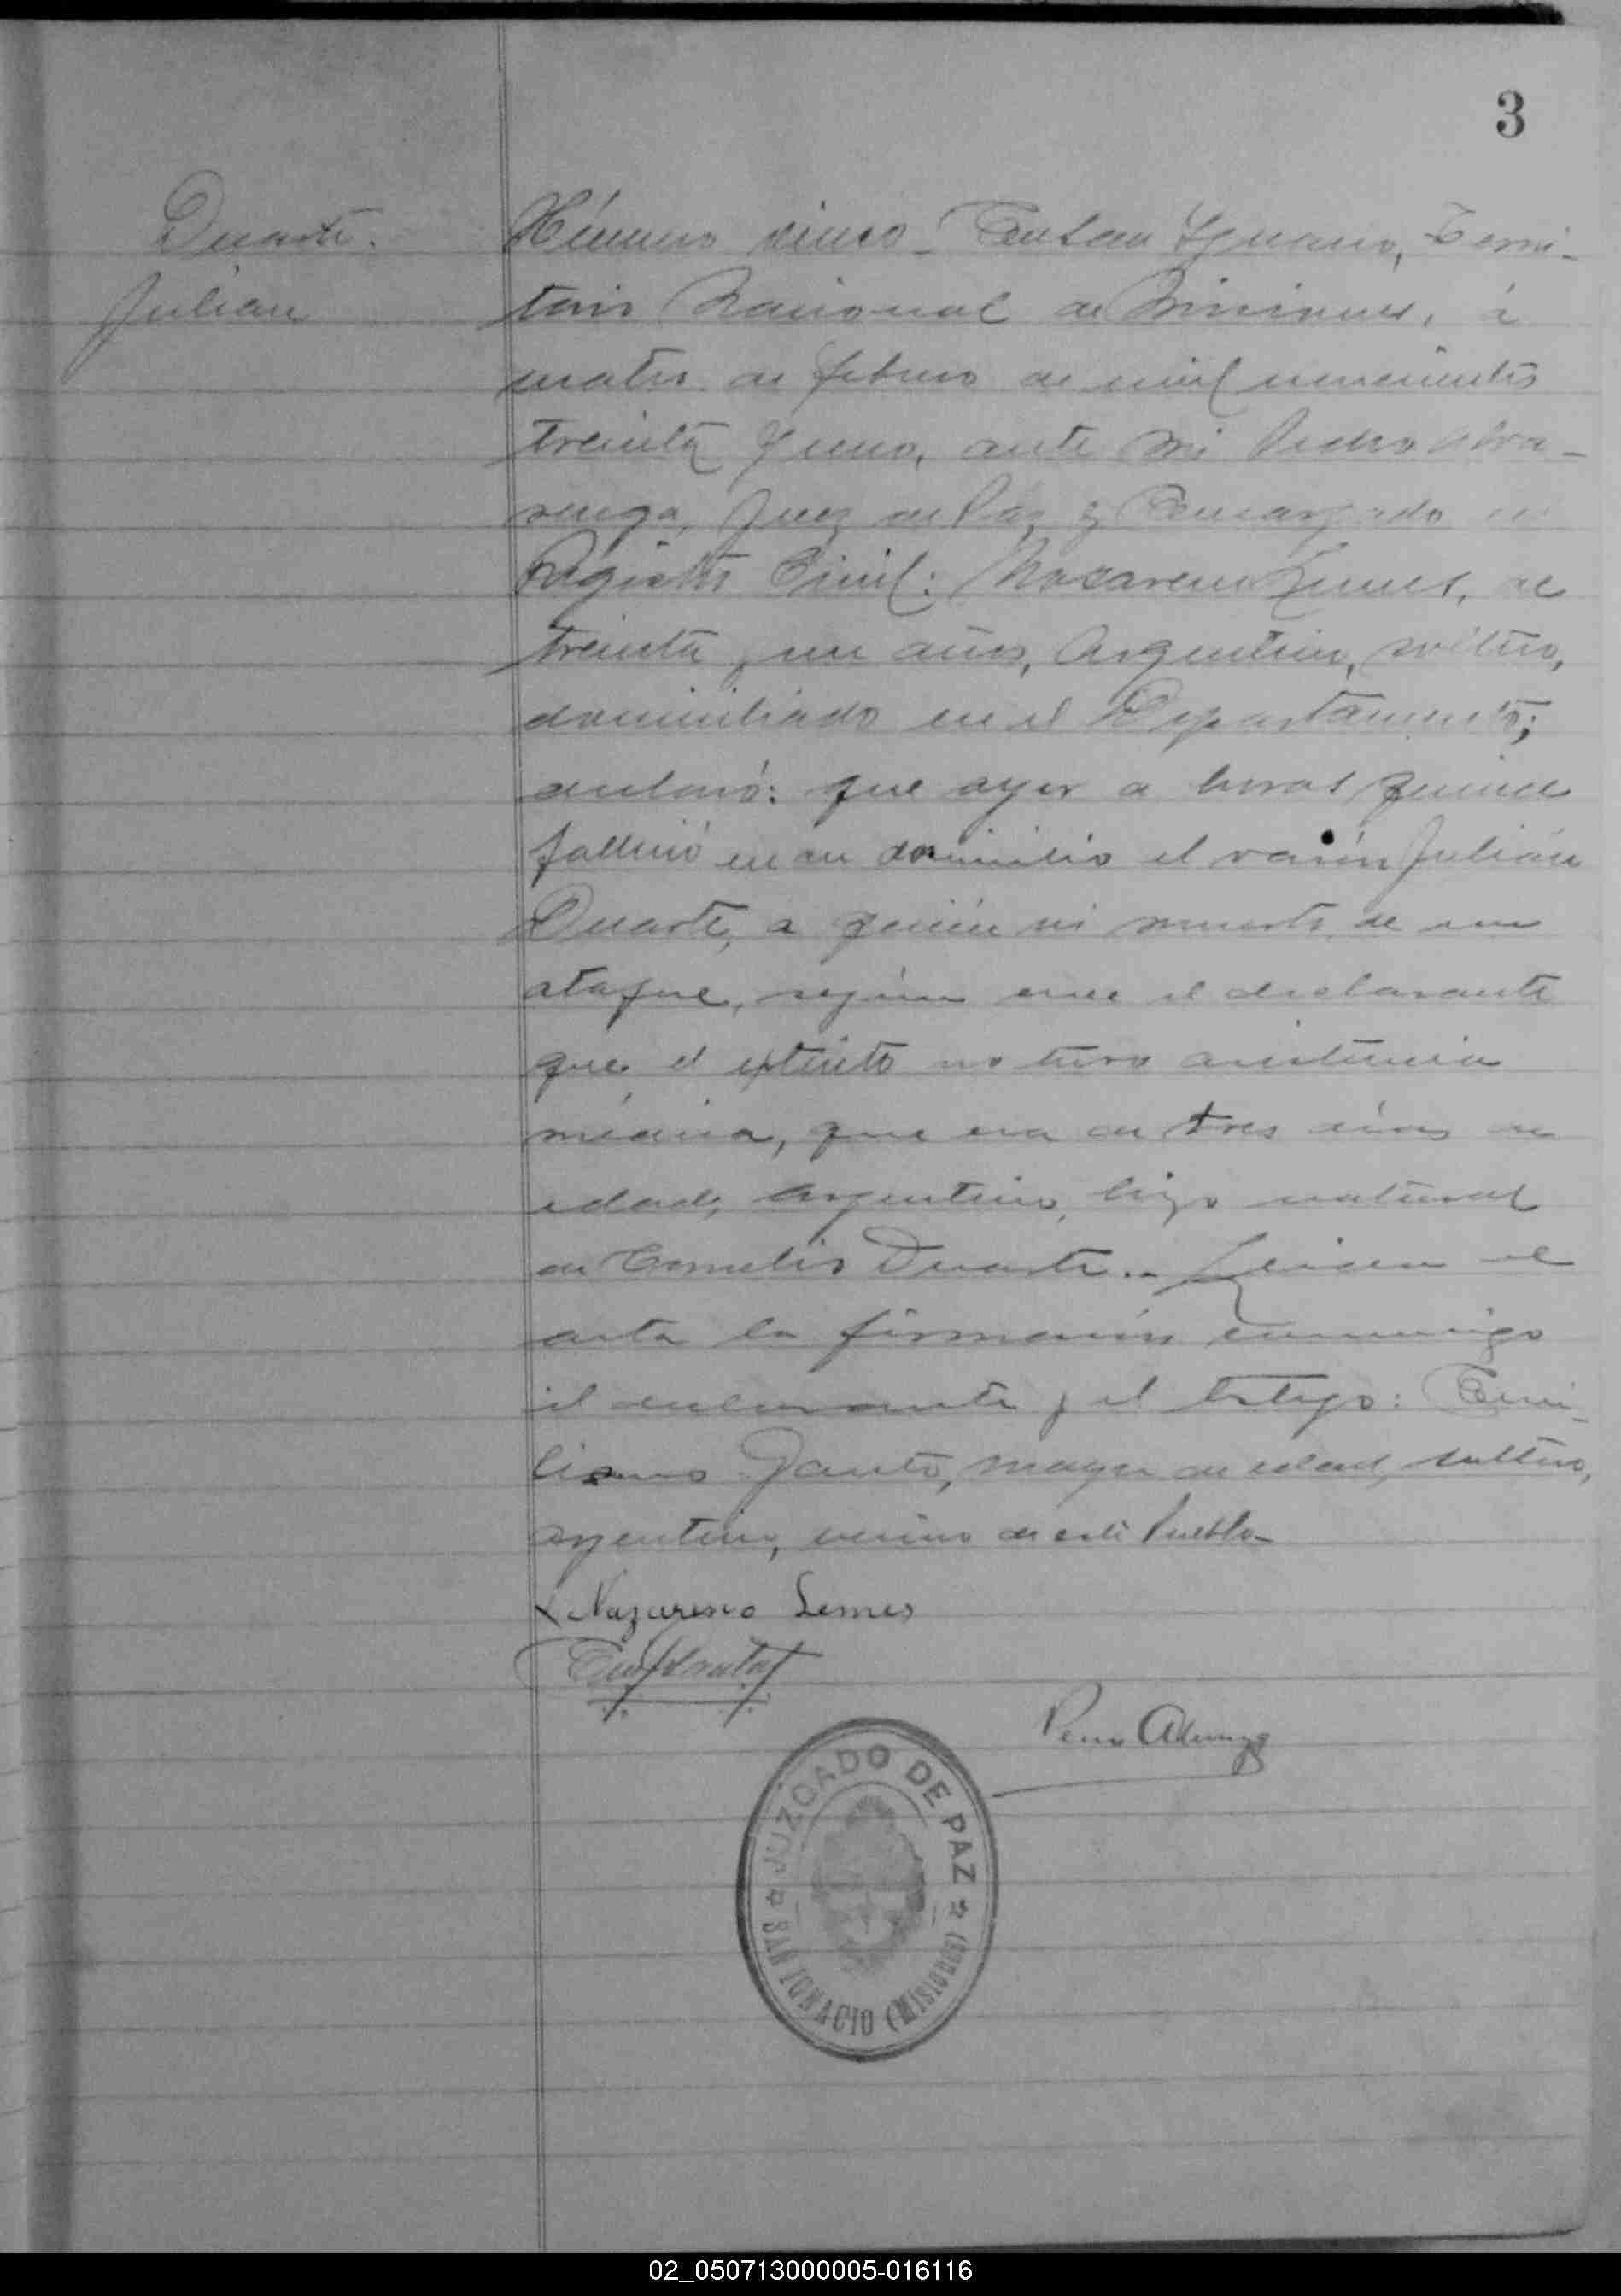 3
Duarte.
Julian
Número cinco - En San Ignacio, Terri-
torio Nacional de Misiones, á
cuatro de febrero de mil novecientos
treinta y uno, ante mi Pedro Alva-
renga, Juez de Paz y Encargado del
Registro Civil: Nazareno Lemes, de
treinta y un años, Argentino, soltero,
domiciliado en el Departamento;
declaró: que ayer a horas quince
falleció en su domicilio el varón Julián
Duarte, a quién vi muerto, de un
ataque, según cree el declarante
que el extinto no tuvo asistencia
médica, que era de tres días de
edad, Argentino, hijo natural
de Duarte.. Leida el
acta la firmarón conmigo
el declarante y el testigo: Emi-
liano mayor de edad, soltero,
argentino, vecino de este Pueblo-
Nazareno Lemes
JUZGADO DE PAZ
SAN IGNACIO (Misiones)
02_050713000005-016116